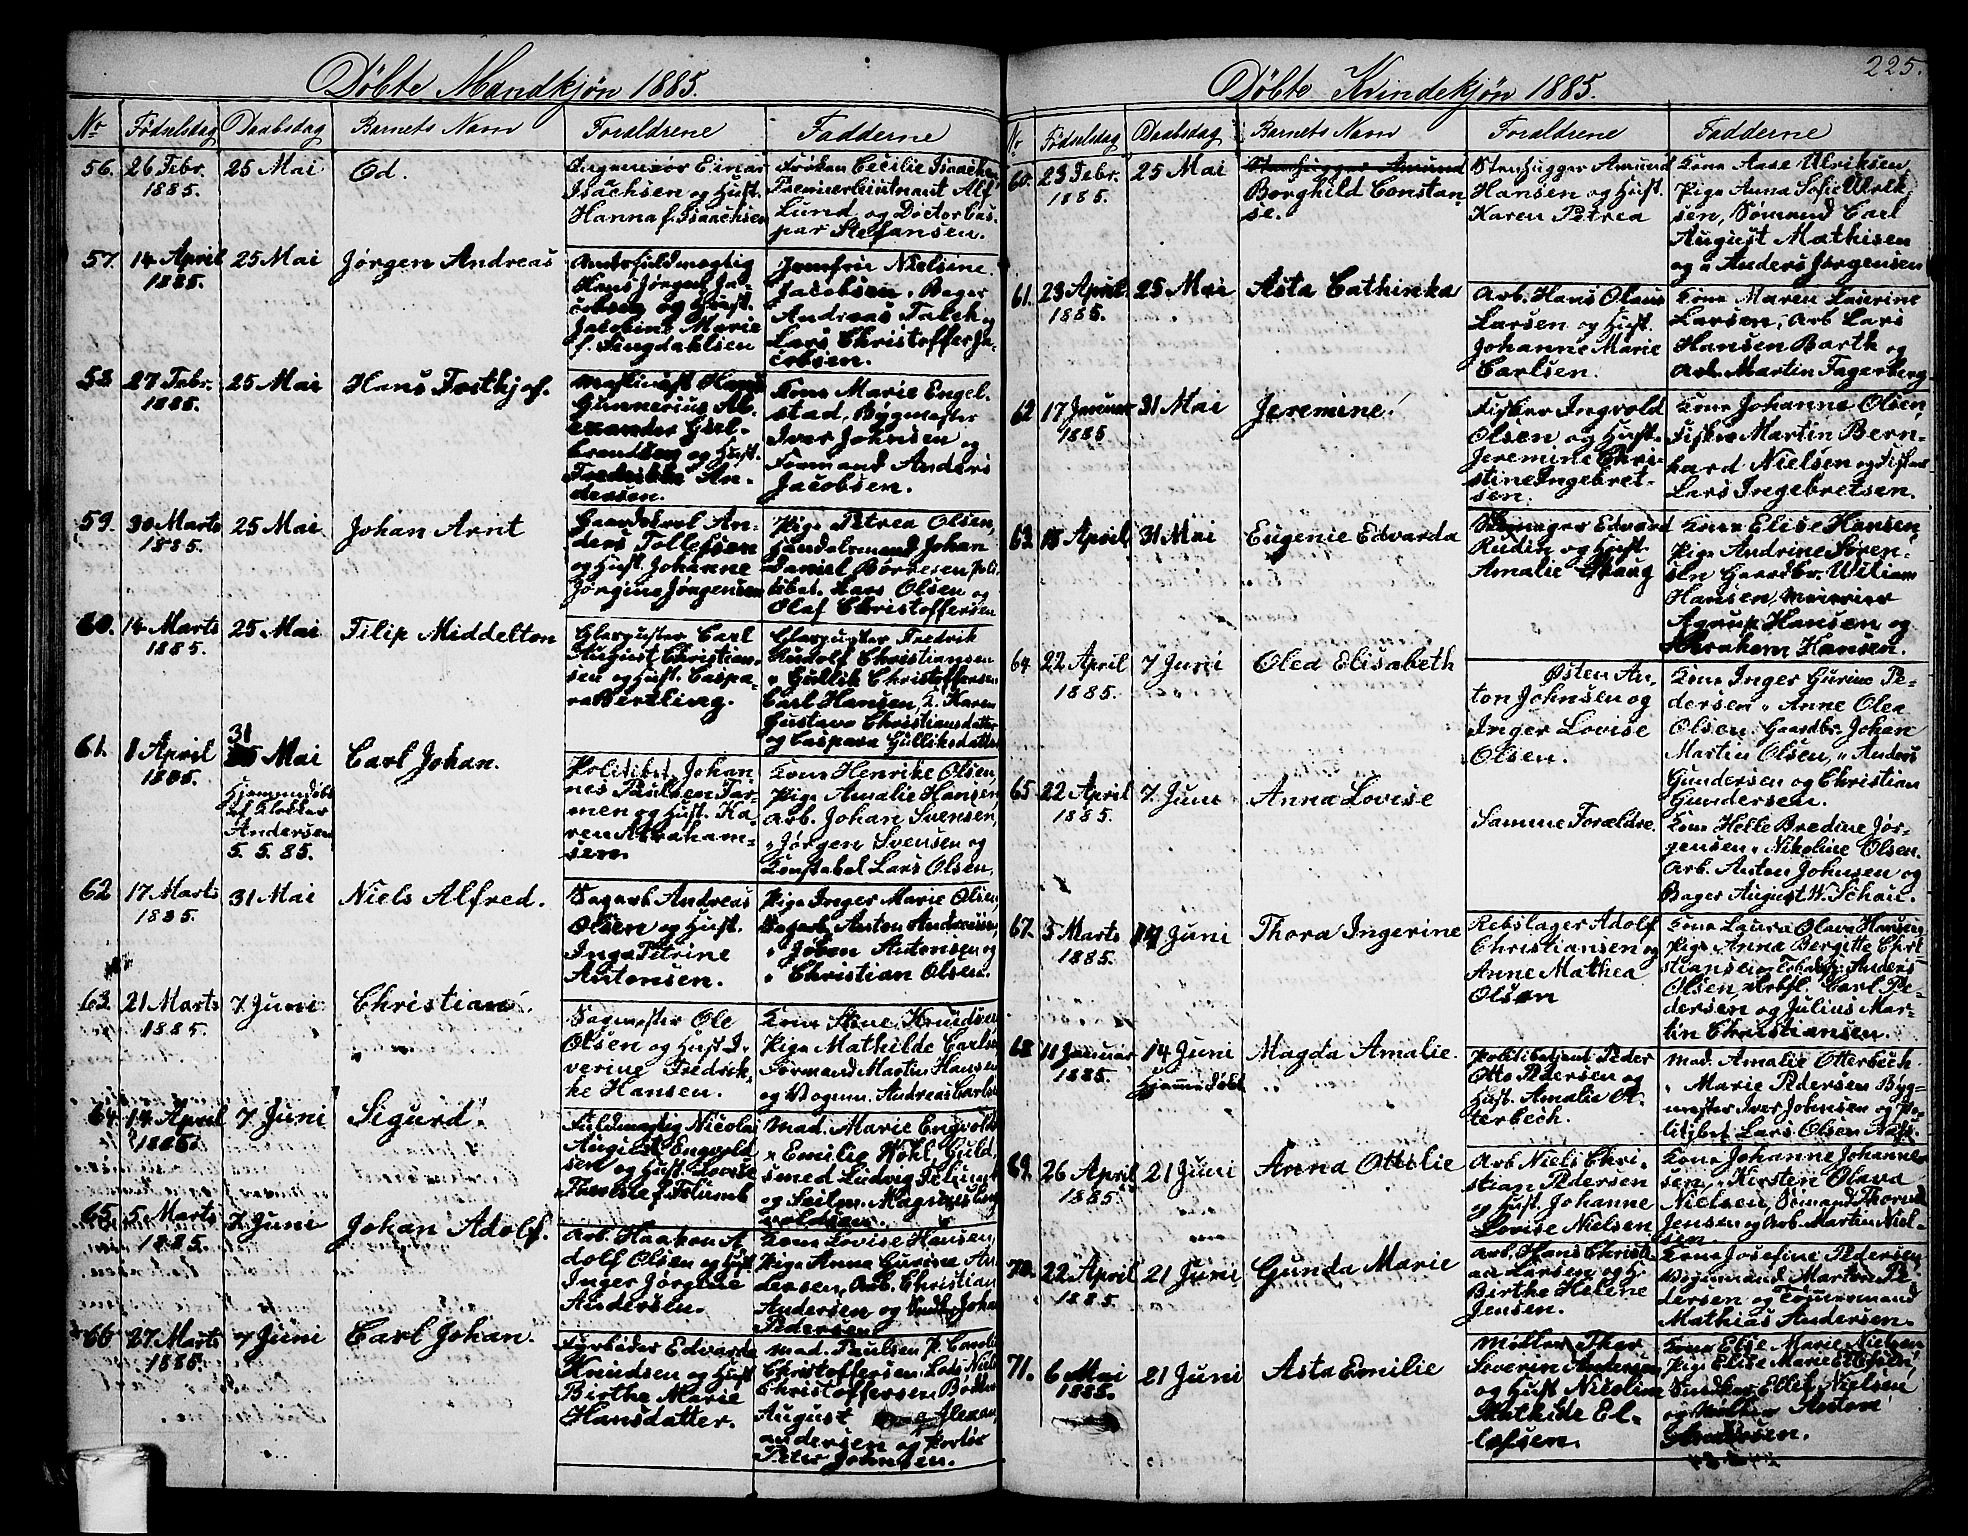 Døbte Mandkjøn 1885.
No Fødselsdag Daabsdag Barnets Navn Forældrene Fadderne
56. 26 Febr. 1885. 25 Mai Od.
Ingeniør Einar
Isachsen og Hust.
Hanna f. Isaachsen
Frøken Cecilie Isaachsen
Premierleutnant Alf
Lund, og Doctor Cas-
par Stefansen.
57. 14 April 1885. 25 Mai Jørgen Andreas
Hans Jørgen Ja-
cobsen og Hust.
Jacobine Marie
f. Singdahlsen
Jomfru Nielsine
Jacobsen, Bager
Andreas Falch og
Lars Christoffer Ja-
cobsen.
58 27 Febr. 1885. 25 Mai Hans Frithjof.
Hans
Gunnerius Al-
exander Gul-
brandsen og Hust.
Fredrikke An-
dersen.
Kone Marie Engel-
stad, Bygmester
Iver Johnsen og
Formand Anders
Jacobsen.
59. 30 Marts 1885. 25 Mai Johan Arnt
An-
ders Tollefsen
og Hust. Johanne
Jørgine Jørgensen
Pige Petrea Olsen,
Handelsmand Johan
Daniel Børresen Poli-
tibet. Lars Olsen og
Olaf Christoffersen
60. 14 Marts 1885. 25 Mai Filip Middelton
Glaspuster Carl
August Christian-
sen og Hust. Caspa-
ra Bertling.
Glaspuster Fredrik
Rudolf Christiansen
" Gullik Christoffersen
Carl Hansen, K. Karen
Gustava Christiansdatter
og Caspara Gulliksdatter
61. 8 April 1885. 31 Mai Carl Johan.
Hjemmedøbt
af Klokker
Andersen
5. 5. 85.
Politibet. Johan-
nes Paulsen Far-
men og Hust. Ka-
ren Abraham-
sen.
Kone Henrike Olsen,
Pige Amalie Hansen
Arb. Johan Svensen,
" Jørgen Svensen og
Konstabel Lars Olsen,
62 17 Marts 1885. 31 Mai Niels Alfred.
Sagarb Andreas
Olsen og Hust.
Inga Petrine
Antonsen.
Pige Inger Marie Olsen,
Sagarb. Anton Andreassen,
" Johan Antonsen og
" Christian Olsen.
63. 21 Marts 1885. 7 Juni Christian.
Sagmester Ole
Olsen og Hust I-
verine Fredrik-
ke Hansen.
Kone Anne Knudsen
Pige Mathilde Carlsen
Formand Martin Hansen
og Vognm. Andreas Carlsen
64. 14 April 1885. 7 Juni Sigurd.
Fuldmægtig Nicolai
August Engvold-
sen og Hust. Lovise
Therese f. Felumb
Mad. Marie Engvolds
" Emilie Kohl, Guld-
smed Ludvig Felumb
og Magnus Eng-
voldsen.
65. 5 Marts 1885. 7 Juni Johan Adolf.
Arb. Haakon A-
dolf Olsen og Hust
Inger Jørgine
Andersen.
Kone Lovise Hansen,
Pige Anna Gurine An-
dersen, Arb. Christian
Andersen og Johan
Pedersen
66 27 Marts 1885. 7 Juni Carl Johan.
Fyrbøder Edvard
Knudsen og Hust
Birthe Marie
Hansdatter.
Mad. Paulsen P. Caroline
Christoffersen, Lods Niels
Christoffersen, Bødker
August og Alexan,
andersen og Portør
Peter Johnsen.
225.
Døbte Kvindekjøn 1885.
Nr Fødselsdag Daabsdag Barnets Navn Forældrene Fadderne
60. 23 Febr. 1885. 25 Mai Stenhugger Amund
Borghild Constan-
se.
Stenhugger Amund
Hansen og Hust.
Karen Petrea
Kone Aase Ulriksen,
Pige Anna Sofie Ulrik-
sen, Sømand Carl
August Mathisen
og " Anders Jørgensen
61. 23 April 1885. 25 Mai Asta Cathinka
Arb. Hans Olaus
Larsen og Hust.
Johanne Marie
Carlsen.
Kone Maren Laurine
Larsen, Arb Lars
Hansen Barth og
Arb. Martin Fagerberg
62 17 Januar 1885 31 Mai Jeremine.
Fisker Ingvold
Olsen og Hust.
Jeremine Chri-
stine Ingebret-
sen.
Kone Johanne Olsen,
Fisker Martin Bern-
hard Nielsen og Fisker
Lars Ingebretsen.
63. 18 April 31 Mai Eugenie Edvarda
Edvard
Rudin og Hust.
Amalie Skaug
Kone Elise Hansen,
Pige Andrine Søren-
sen Gaardbr. William
Hansen, Meierier
Agrup Hansen og
Abraham Hansen.
64. 22 April 1885. 7 Juni Olea Elisabeth
Østen An-
ton Johnsen og
Inger Lovise
Olsen.
Kone Inger Gurine Pe-
dersen " Anne Olea
Olsen. Gaardbr. Johan
Martin Olsen, " Anders
Gundersen og Christian
Gundersen.
65 22 April 1885. 7 Juni Anna Lovise
Samme Forældre.
Kone Helle Bredine Jør-
gensen " Nikoline Olsen.
Arb. Anton Johnsen og
Bager August W. Schau.
67. 5 Marts 1885. 14 Juni Thora Ingerine
Rebslager Adolf
Christiansen og
Anne Mathea
Olsen
Kone Laura Olava Hansen,
Pige Anna Bergitte Chri-
stiansen og Anders
Olsen, Carl Pe-
dersen og Julius Mar-
tin Christiansen.
68 11 Januar 1885. 14 Juni Magda Amalie.
Hjemmedøbt
Politibetjent Peder
Otto Pedersen og
Hust. Amalie Ot-
terbech.
Mad. Amalie Otterbech
" Marie Pedersen Byg-
mester Iver Johnsen og Po-
litibet Lars Olsen Næss.
69. 26 April 1885. 21 Juni Anna Ottilie
Arb Niels Chri-
stian Pedersen
og Hust. Johanne
Lovise Nielsen
Kone Johanne Johanne-
sen, " Kirsten Olava
Nielsen, Sømand Thorvald
Jensen og Arb. Martin Niel-
sen.
70. 22 April 1885. 21 Juni Gunda Marie
Arb. Hans Christi-
an Larsen og H.
Birthe Helene
Jensen.
Kone Josefine Pedersen,
Vognmand Morten Pe-
dersen og Tømmermand
Mathias Andersen.
71. 6 Mai 1885. 21 Juni Asta Emilie
Møller Thor
Severin Andersen
og Hust Nicoline
Mathilde El-
lefsen.
Kone Elise Marie Nielsen
Pige Elise Marie Ellefsen,
Snedker Ellef Nielsen
og Anton
Andersen.